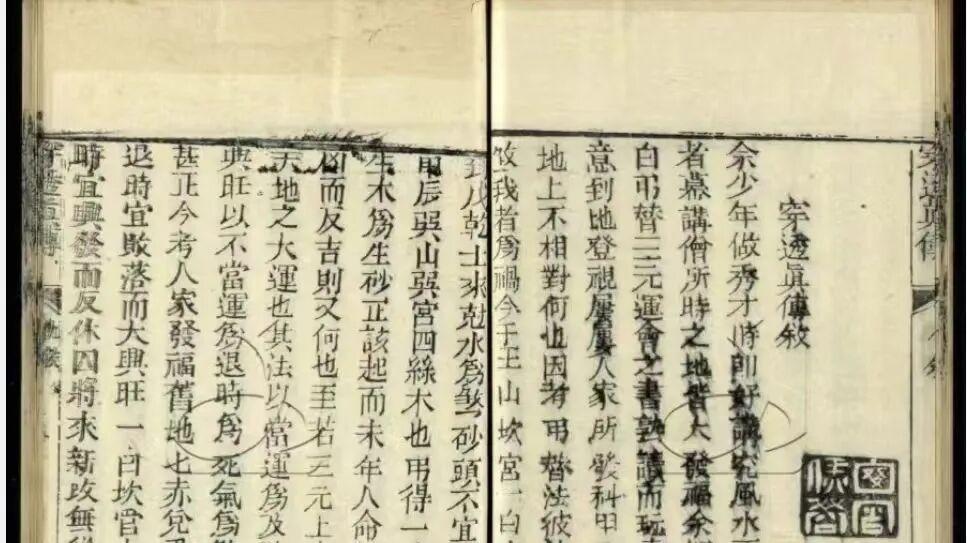 穿透眞傳
穿透眞傳敘
余少年做秀才時則好講究風水
者慕講僧所時之地皆大發福余
白弔替三元運會之書熟讀而玩
意到地登視屢屢人家所發科甲
地上不相對何也因考弔替法彼
攻我者爲禍今子壬山坎宮一白
到戌乾土來尅水爲煞砂頭不宜
甲辰巽山巽宮四綠木也弔得一
生木爲生砂正該起而未年人命
凶而反吉則又何也至若三元上
天地之大運也其法以當運爲及
興旺以不當運爲退時爲死氣爲
甚正今考人家發福舊地七赤兌
退時宜敗落而大興旺一白坎宮
時宜興發而反休囚將來新改無
穿透眞傳